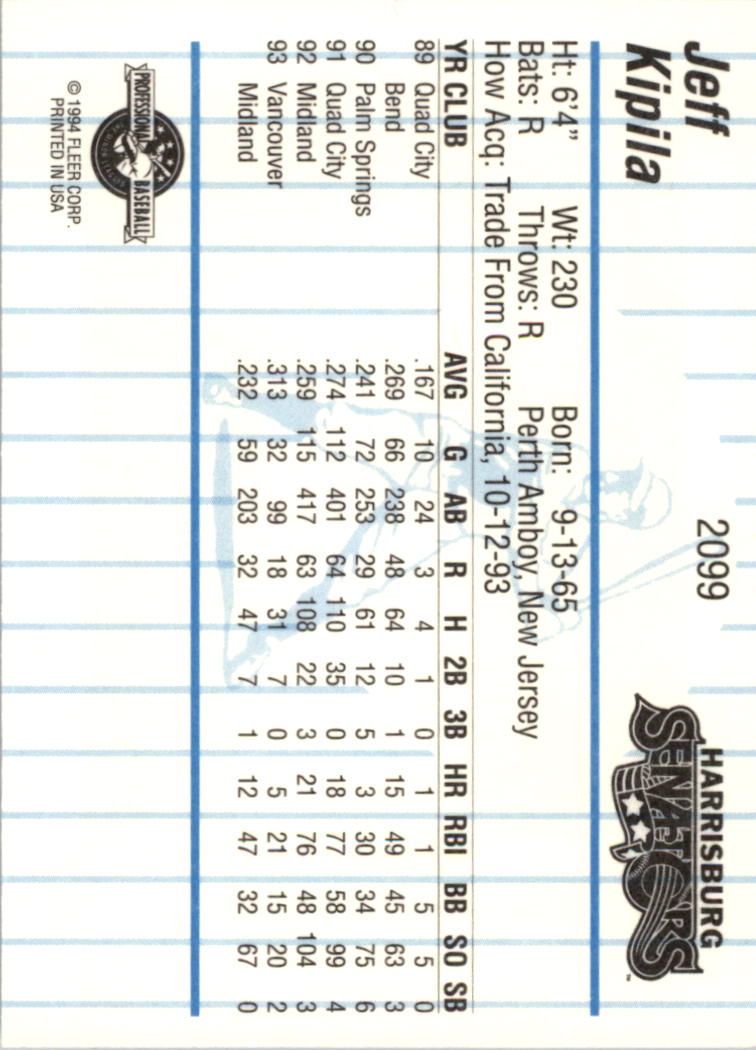 Jeff Kipila
2099
HARRISBURG
SENATORS
™
Ht: 6'4" Wt: 230 Born: 9-13-65
Bats: R Throws: R Perth Amboy, New Jersey
How Acq: Trade From California, 10-12-93
YR CLUB AVG G AB R H 2B 3B HR RBI BB SO SB
89 Quad City .167 10 24 3 4 1 0 1 1 5 5 0
Bend .269 66 238 48 64 10 1 15 49 45 63 3
90 Palm Springs .241 72 253 29 61 12 5 3 30 34 75 6
91 Quad City .274 112 401 64 110 35 0 18 77 58 99 4
92 Midland .259 115 417 63 108 22 3 21 76 48 104 3
93 Vancouver .313 32 99 18 31 7 0 5 21 15 20 2
Midland .232 59 203 32 47 7 1 12 47 32 67 0
PROFESSIONAL BASEBALL
© 1994 FLEER CORP.
PRINTED IN USA